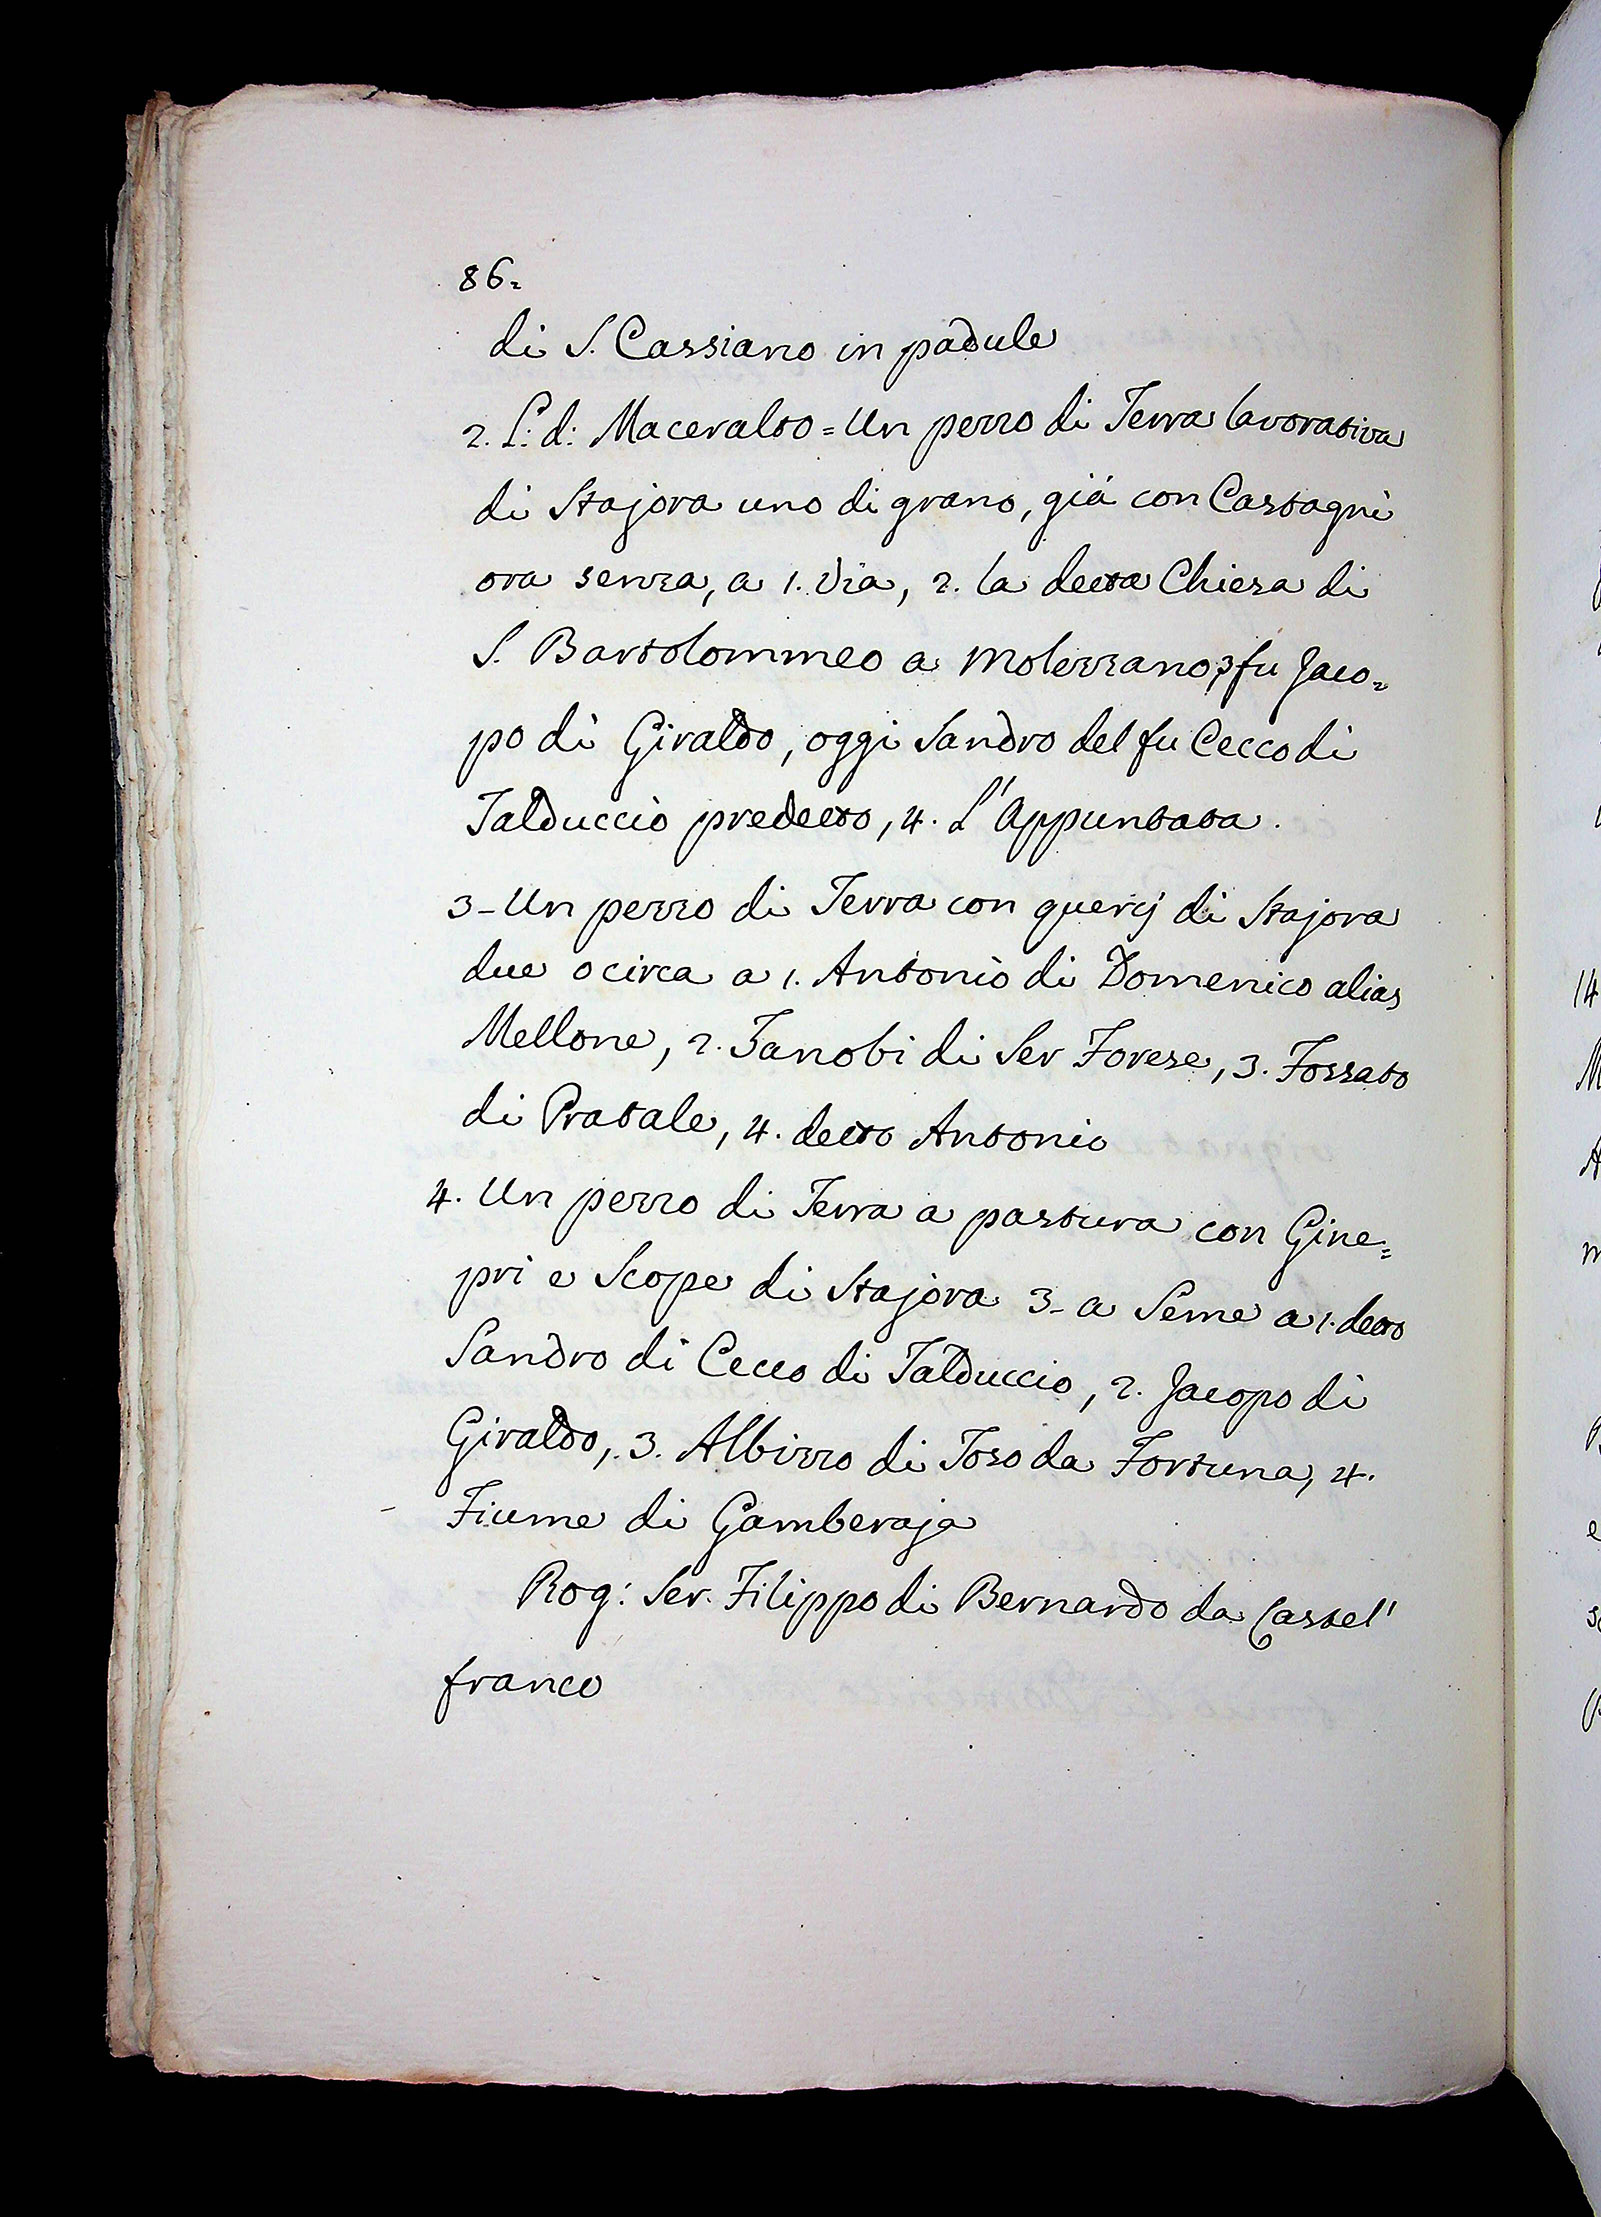 86=
di S. Cassiano in padule
2. L: d: Maceralto = Un pezzo di Terra lavorativa
di Stajora uno di grano, giá con Castagni
ora senza, a 1. Via, 2. la detta Chiesa di
S. Bartolommeo a Molezzano, 3 fu Jaco=
po di Giraldo, oggi Sandro del fu Cecco di
Talduccio predetto, 4. L'Appuntata.
3- Un pezzo di Terra con quercj di Stajora
due o circa a 1. Antonio di Domenico alias
Mellone, 2. Zanobi di Ser Forese, 3. Fossato
di Pratale, 4. detto Antonio
4. Un pezzo di Terra a pastura con Gine=
pri e Scope di Stajora 3- a Seme a 1. detto
Sandro di Cecco di Talduccio, 2. Jacopo di
Giraldo, 3. Albizzo di Toso da Fortuna, 4.
Fiume di Gamberaja
Rog: Ser. Filippo di Bernardo da Castel'
franco